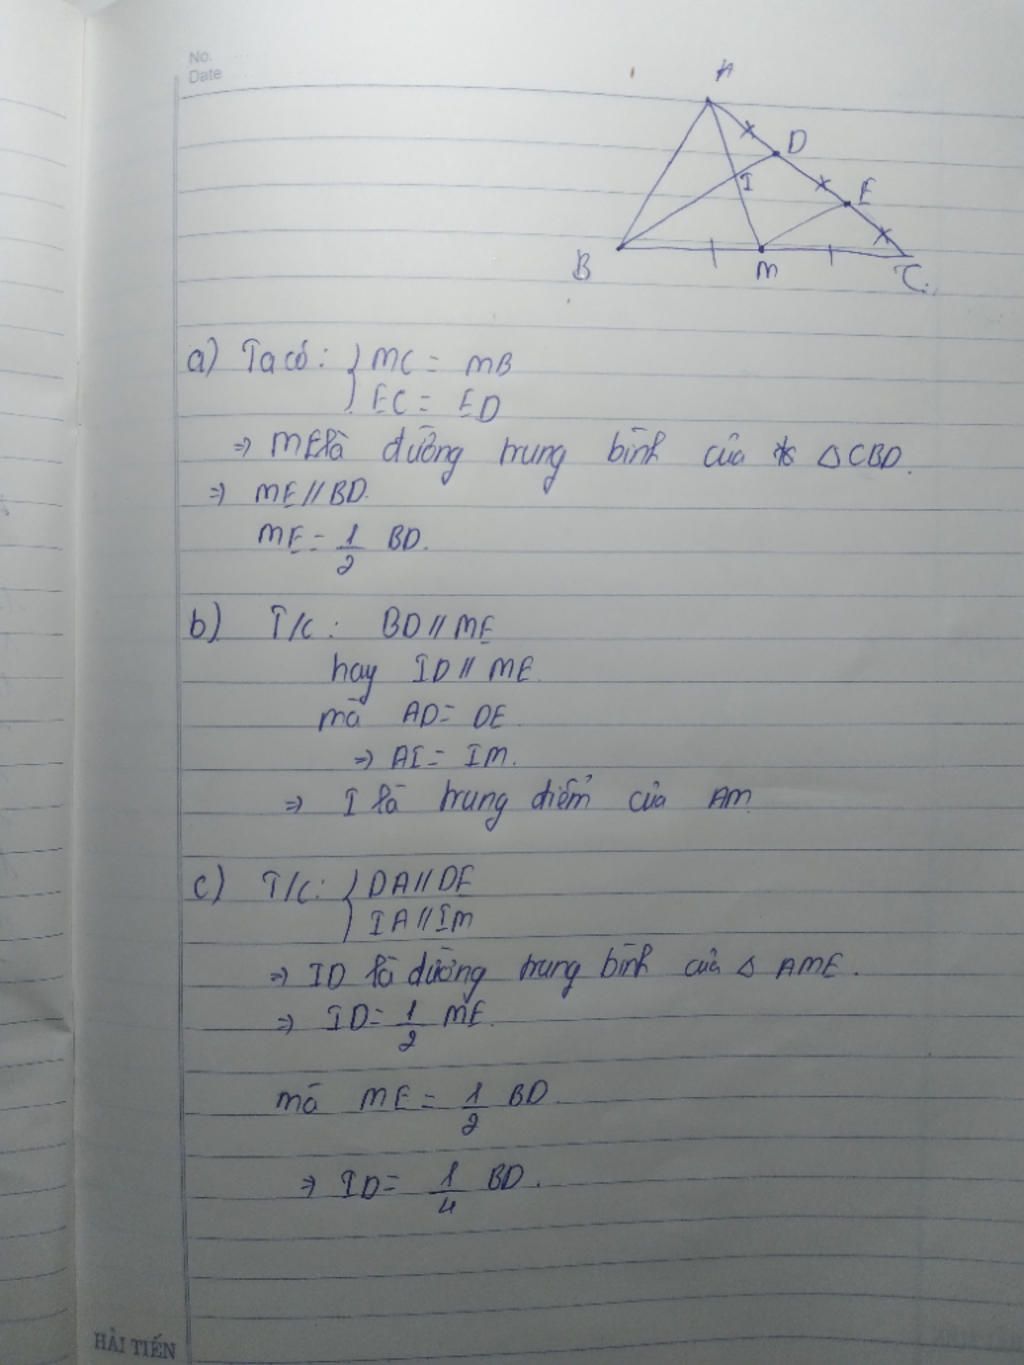 No.
Date
A
D
I
E
B
M
C
a) Ta có: { MC = MB
EC = ED
=> ME là đường trung bình của △CBD.
=> ME // BD.
ME = 1/2 BD.
b) T/c: BD // ME
hay ID // ME.
mà AD = DE.
=> AI = IM.
=> I là trung điểm của AM
c) T/c: { DA // DE
IA // IM
=> ID là đường trung bình của △ AME.
=> ID = 1/2 ME.
mà ME = 1/2 BD.
=> ID = 1/4 BD.
HẢI TIẾN